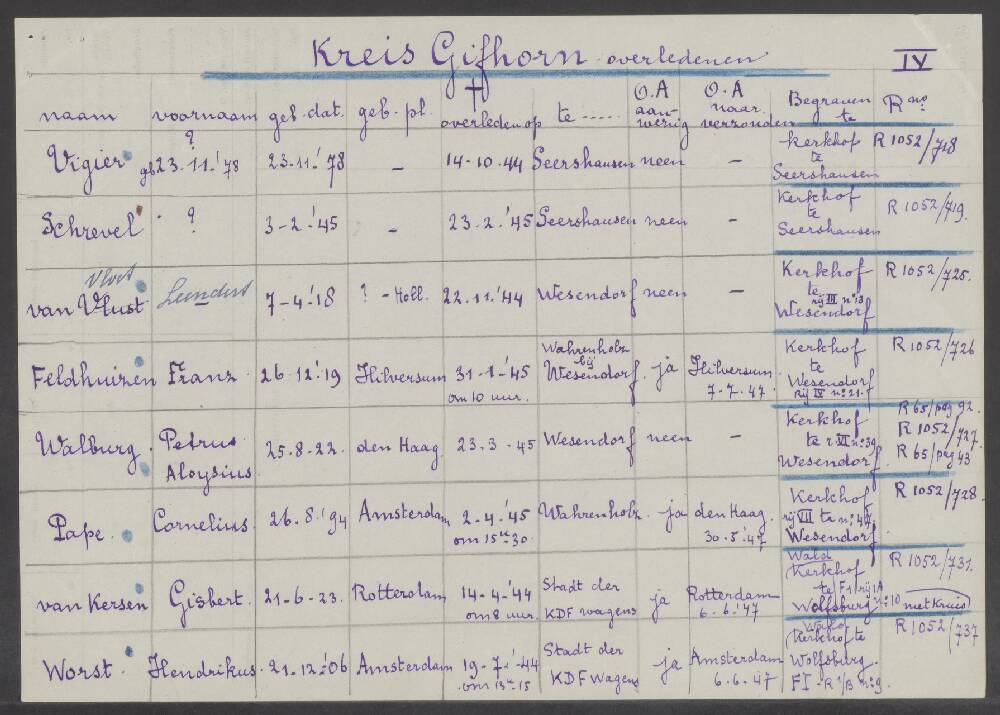 Kreis Gifhorn overledenen IV
naam voornaam geb. dat. geb. pl. † overleden op te ..... O.A aanwezig O.A naar verzonden Begraven te R no.
Vigier ? geb 23.11.'78 23.11.'78 – 14-10-44 Seershausen neen – kerkhof te Seershausen R 1052/718
Schrevel ? 3-2.'45 – 23.2.'45 Seershausen neen – Kerkhof te Seershausen R 1052/719.
van Vlust Vloet Leendert 7-4.'18 ? - Holl. 22.11.'44 Wesendorf neen – Kerkhof te rij III no 13 Wesendorf R 1052/725.
Feldhuizen Franz. 26.12.'19 Hilversum 31-1-'45 om 10 uur. Wahrenholz bij Wesendorf. ja Hilversum 7-7.'47. Kerkhof te Wesendorf rij IV no 21. R 1052/726
Walburg. Petrus Aloysius. 25.8-22. den Haag 23-3-45 Wesendorf neen – Kerkhof te r VI no 39 Wesendorf R 65/pag 92. R 1052/727. R 65/pag 43
Pape. Cornelius. 26.8.'94 Amsterdam 2-4.'45 om 15 u. 30 Wahrenholz. ja den Haag. 30.5.'47 Kerkhof rij VII te no 47 Wesendorf R 1052/728.
van Kersen Gisbert. 21-6-23. Rotterdam 14-4-'44 om 8 uur. Stadt der KDF wagens ja Rotterdam 6.6.'47 Wald Kerkhof te F1 rij 1A Wolfsburg no 10 met Kruis R 1052/731.
Worst. Hendrikus. 21.12.'06 Amsterdam 19-7-'44 om 13 u. 15 Stadt der KDF wagens ja Amsterdam 6.6.'47 Wald Kerkhof te Wolfsburg. FI - R 1/B no 9. R 1052/737